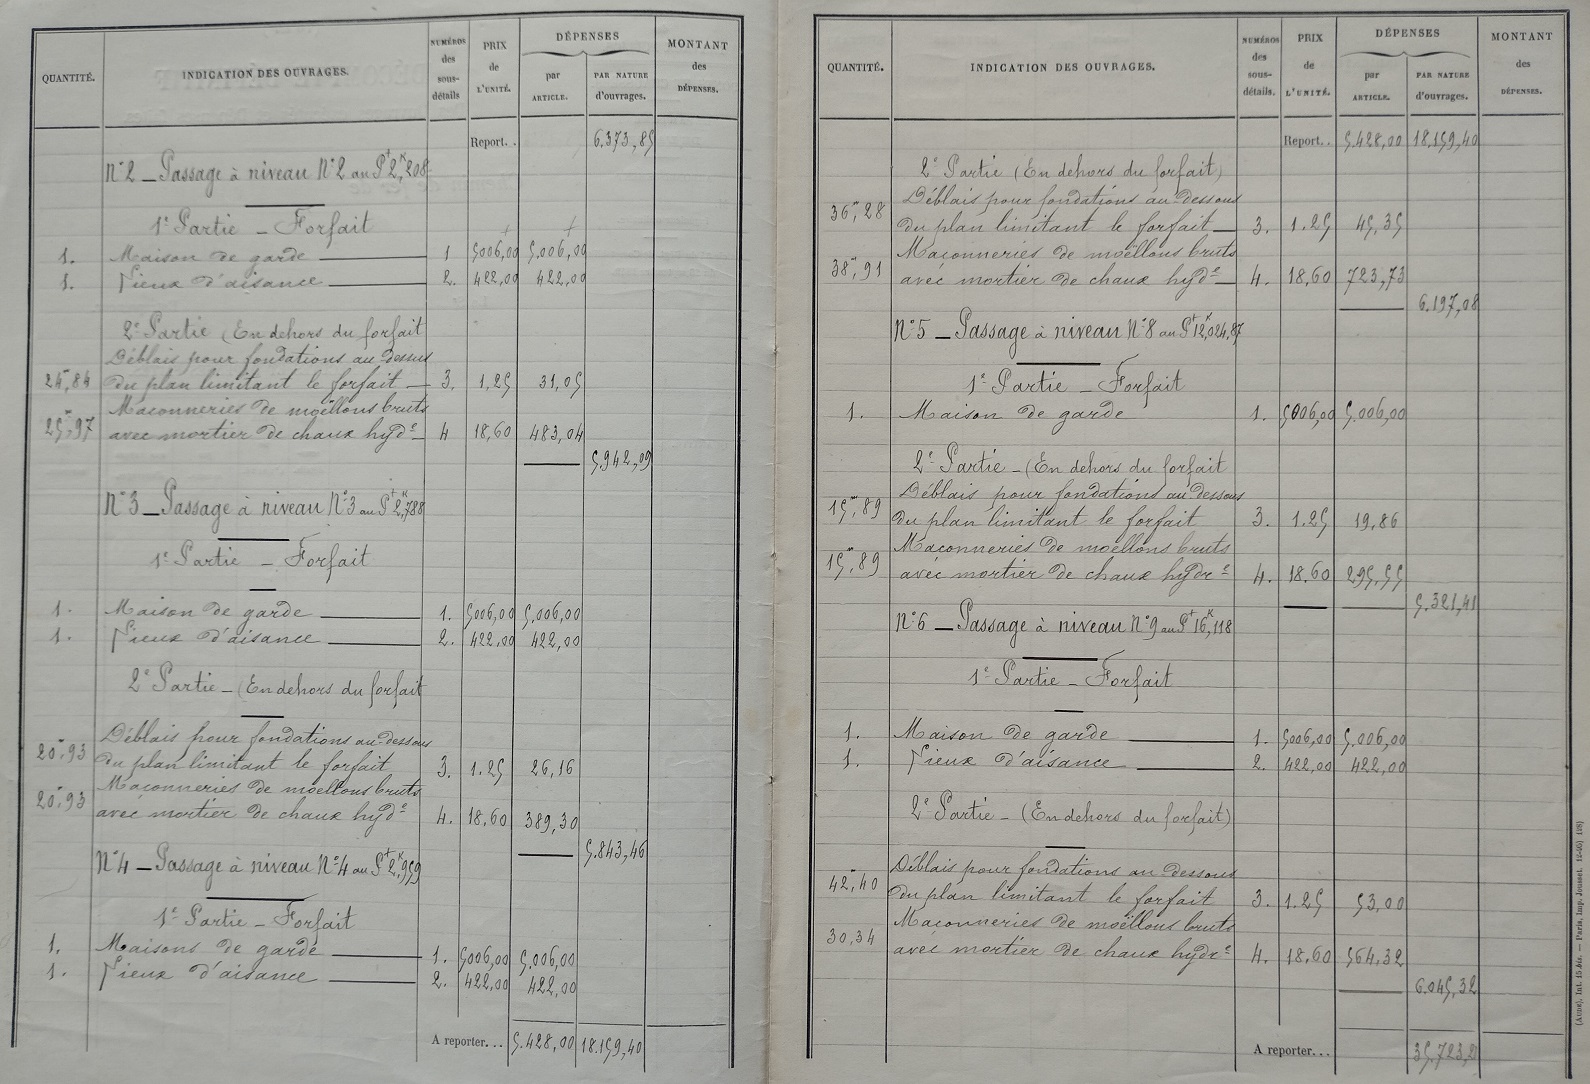 QUANTITÉ. INDICATION DES OUVRAGES. NUMÉROS des sous-détails PRIX de L'UNITÉ. DÉPENSES par ARTICLE. PAR NATURE d'ouvrages. MONTANT des DÉPENSES.
Report. . 6.373,85
N°2 _ Passage à niveau N°2 au Pt 2k,208
1e Partie _ Forfait
1. Maison de garde 1 5006,00 5.006,00
1. Lieux d'aisance 2. 422,00 422,00
2e Partie (En dehors du forfait
Déblais pour fondations au-dessus
24m,84 du plan limitant le forfait 3. 1,25 31,05
Maçonneries de moëllons bruts
25m,97 avec mortier de chaux hyde 4 18,60 483,04
5.942,09
N°3 _ Passage à niveau N°3 au Pt 2k,788
1e Partie _ Forfait
1. Maison de garde 1. 5006,00 5.006,00
1. Lieux d'aisance 2. 422,00 422,00
2e Partie _ (En dehors du forfait
Déblais pour fondations au-dessous
20m,93 du plan limitant le forfait 3. 1.25 26,16
Maçonneries de moëllons bruts
20m,93 avec mortier de chaux hyde 4. 18,60 389,30
5.843,46
N°4 _ Passage à niveau N°4 au Pt 2k,959
1e Partie _ Forfait
1. Maisons de garde 1. 5006,00 5.006,00
1. Lieux d'aisance 2. 422,00 422,00
A reporter. . . 5.428,00 18.159,40
QUANTITÉ. INDICATION DES OUVRAGES. NUMÉROS des sous-détails. PRIX de L'UNITÉ. DÉPENSES par ARTICLE. PAR NATURE d'ouvrages. MONTANT des DÉPENSES.
Report. . 5.428,00 18.159,40
2e Partie (En dehors du forfait)
Déblais pour fondations au-dessous
36m,28 du plan limitant le forfait 3. 1.25 45,35
Maçonneries de moëllons bruts
38m,91 avec mortier de chaux hyde 4. 18,60 723,73
6.197,08
N°5 _ Passage à niveau N°8 au Pt 12k,024,87
1e Partie _ Forfait
1. Maison de garde 1. 5006,00 5.006,00
2e Partie _ (En dehors du forfait
Déblais pour fondations au dessous
15m,89 du plan limitant le forfait 3. 1.25 19,86
Maçonneries de moëllons bruts
15m,89 avec mortier de chaux hydre 4. 18.60 295,55
5.321,41
N°6 _ Passage à niveau N°9 au Pt 16k,118
1e Partie _ Forfait
1. Maison de garde 1. 5006,00 5.006,00
1. Lieux d'aisance 2. 422,00 422,00
2e Partie _ (En dehors du forfait)
Déblais pour fondations au dessous
42m,40 du plan limitant le forfait 3. 1.25 53,00
Maçonneries de moëllons bruts
30,34 avec mortier de chaux hydre 4. 18,60 564,32
6.045,32
A reporter. . . 35.723,2
(Anne), Int. 15 bis. — Paris, Imp. Jousset.